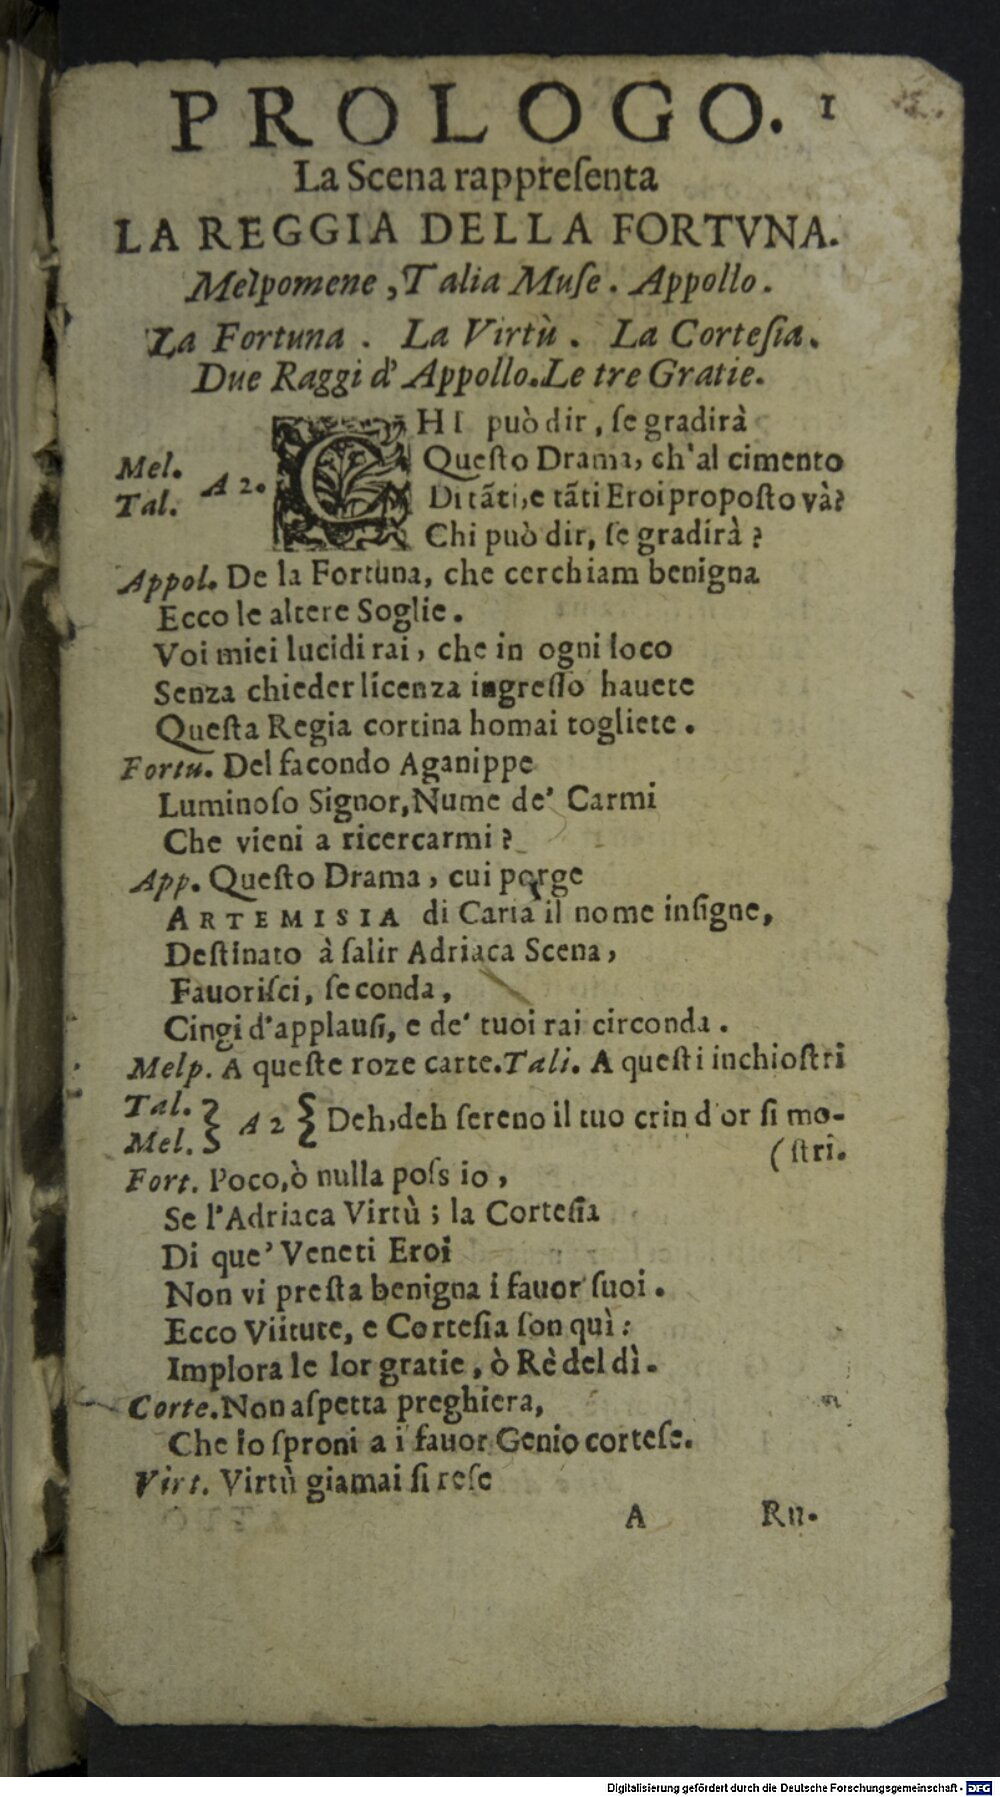 PROLOGO. 1
La Scena rappreſenta
LA REGGIA DELLA FORTVNA.
Melpomene, Talia Muſe. Appollo.
La Fortuna. La Virtù. La Corteſia.
Due Raggi d'Appollo. Le tre Gratie.
Mel. Tal. A 2. CHI può dir, ſe gradirà
Queſto Drama, ch'al cimento
Di tãti, e tãti Eroi propoſto và?
Chi può dir, ſe gradirà?
Appol. De la Fortuna, che cerchiam benigna
Ecco le altere Soglie.
Voi miei lucidi rai, che in ogni loco
Senza chieder licenza ingreſſo hauete
Queſta Regia cortina homai togliete.
Fortu. Del facondo Aganippe
Luminoſo Signor, Nume de' Carmi
Che vieni a ricercarmi?
App. Queſto Drama, cui porge
ARTEMISIA di Caria il nome inſigne,
Deſtinato à ſalir Adriaca Scena,
Fauoriſci, ſeconda,
Cingi d'applauſi, e de' tuoi rai circonda.
Melp. A queſte roze carte. Tali. A queſti inchioſtri
Tal. Mel. } A 2 { Deh, deh ſereno il tuo crin d'or ſi mo-
(ſtri.
Fort. Poco, ò nulla poſs io,
Se l'Adriaca Virtù; la Corteſia
Di que' Veneti Eroi
Non vi preſta benigna i fauor ſuoi.
Ecco Viitute, e Corteſia ſon quì:
Implora le lor gratie, ò Rè del dì.
Corte. Non aſpetta preghiera,
Che lo ſproni a i fauor Genio corteſe.
Virt. Virtù giamai ſi reſe
A Ru-
Digitalisierung gefördert durch die Deutsche Forschungsgemeinschaft - DFG